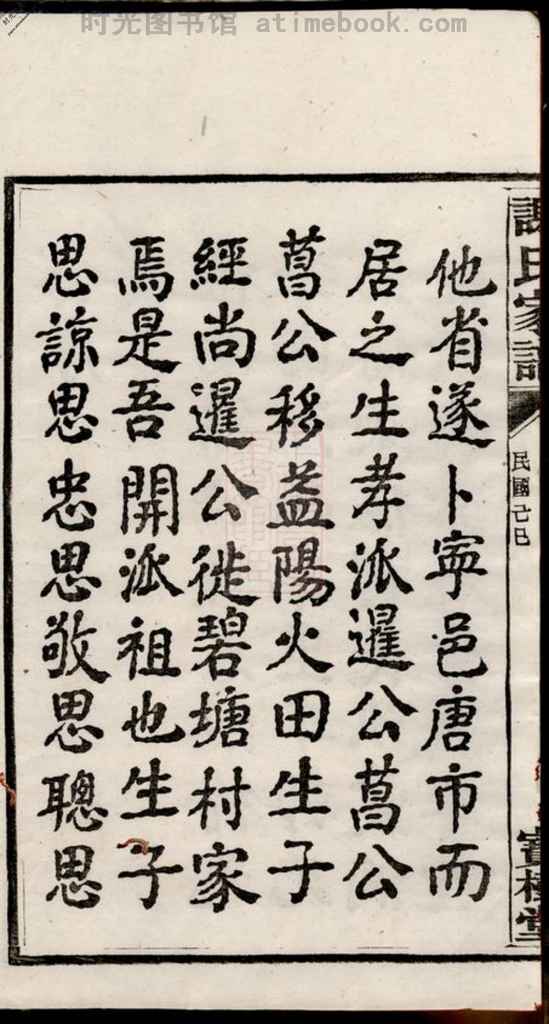 时光图书馆 atimebook.com
謝氏家譜
民國己巳
寶樹堂
他省遂卜寧邑唐市而
居之生孝派暹公菖公
菖公移益陽火田生子
經尚暹公徙碧塘村家
焉是吾開派祖也生子
思諒思忠思敬思聰思